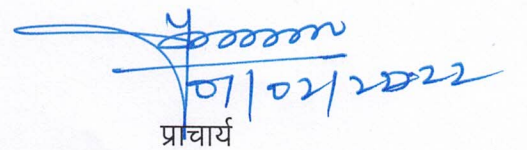 01/02/2022
प्राचार्य